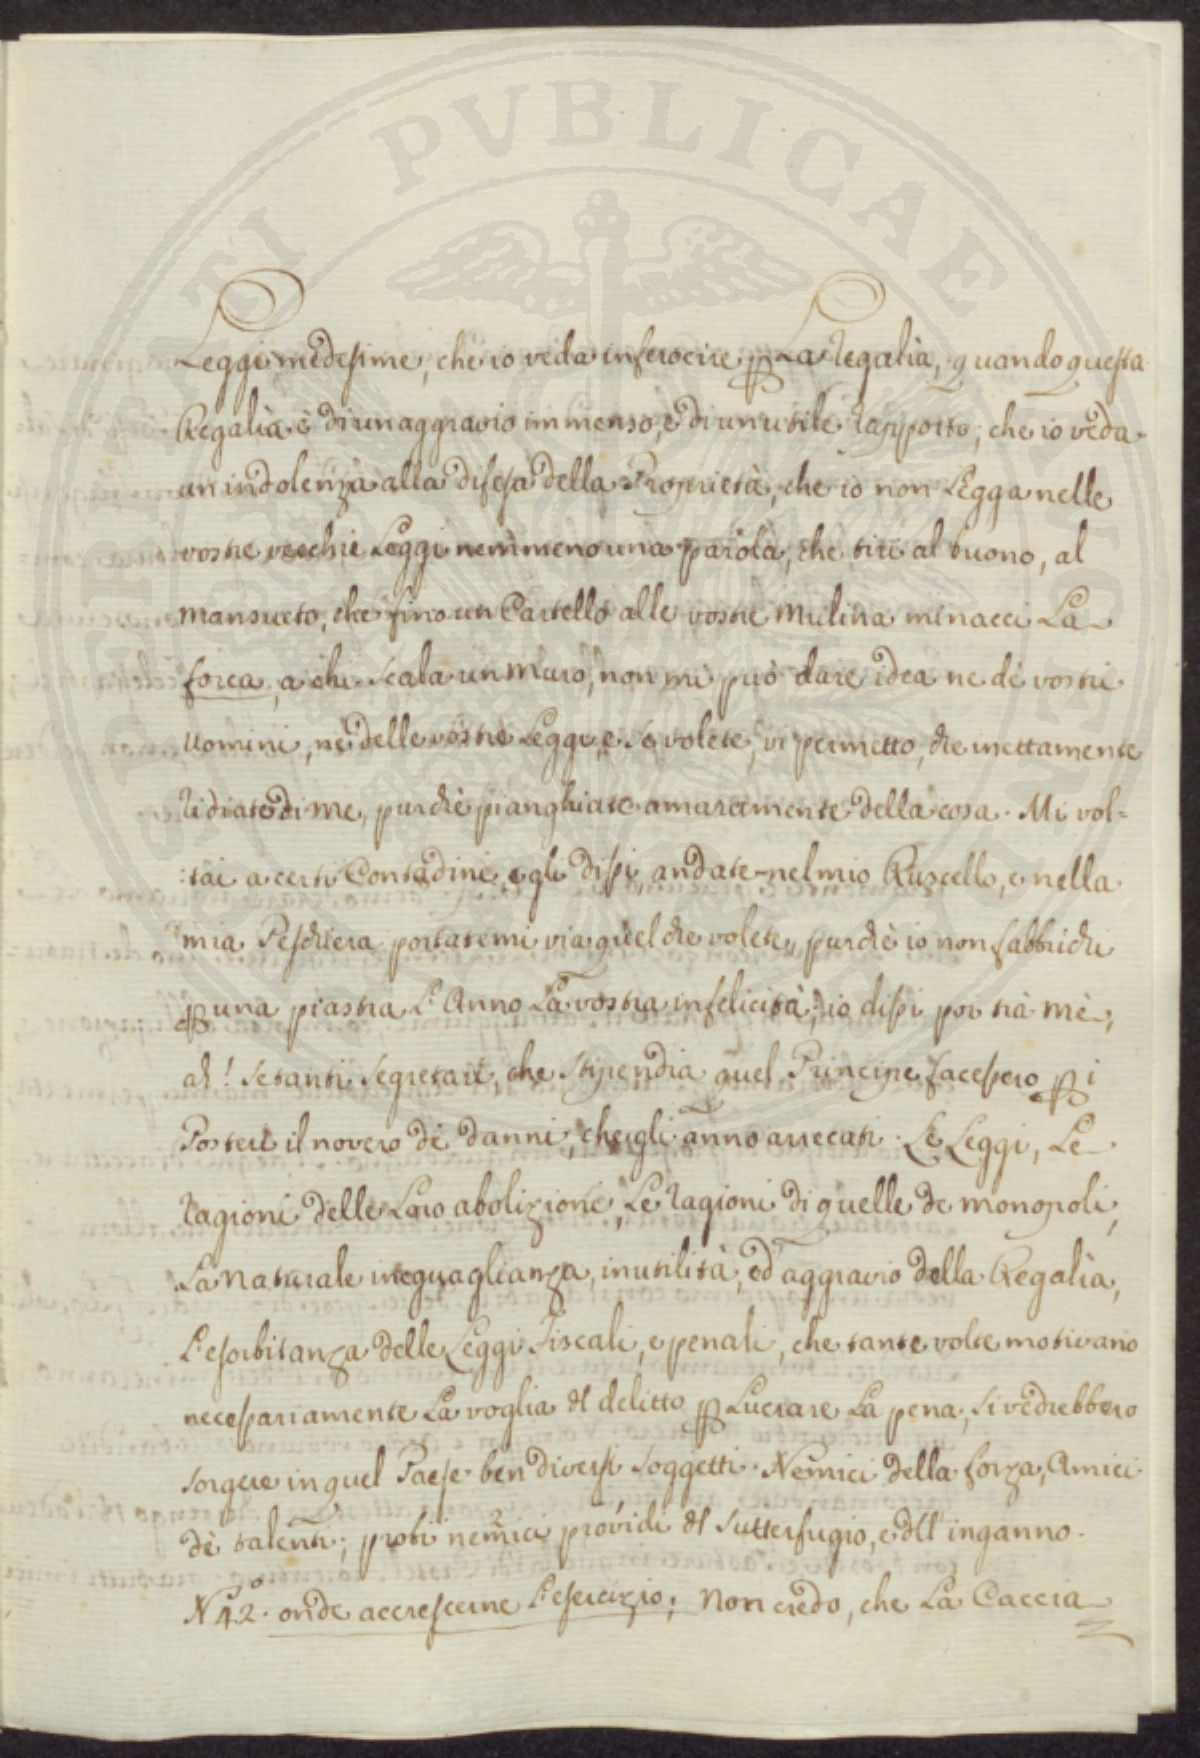 PVBLICAE
Leggi medesime, che io veda inferocire p La Regalìa, quando questa
Regalìa è di un aggravio immenso, e di un utile rapporto; che io veda
un indolenza alla difesa della Proprietà, che io non Legga nelle
vostre vecchie Leggi nemmeno una parola, che tiri al buono, al
mansueto, che fino un Cartello alle vostre Mulina minacci La
forca, a chi scala un Muro, non mi può dare idea ne dè vostri
Uomini, nè delle vostre Leggi, e se volete, vi permetto, che inettamente
ridiate di me, purchè pianghiate amaramente della cosa. Mi vol=
:tai a certi Contadini, e gli dissi, andate nel mio Ruscello, e nella
mia Peschiera portatemi via quel che volete, purchè io non fabbrichi
p una piastra L'Anno La vostra infelicità; io dissi poi trà mè,
ah! se tanti Segretari, che stipendia quel Principe facessero p i
Posteri il novero dè danni, che gli anno arrecati. Le Leggi, Le
ragioni delle Loro abolizioni, Le ragioni di quelle de monopoli,
La naturale ineguaglianza, inutilità, ed aggravio della Regalìa,
L'esorbitanza delle Leggi Fiscali, e penali, che tante volte motivano
necessariamente La voglia dl delitto p Lucrare La pena, si vedrebbero
sorgere in quel Paese ben diversi soggetti. Nemici della forza, Amici
dè talenti; probi nemici próvidi dl Sutterfugio, e dll'inganno.
N 42.o onde accrescerne L'esercizio; Non credo, che La Caccia